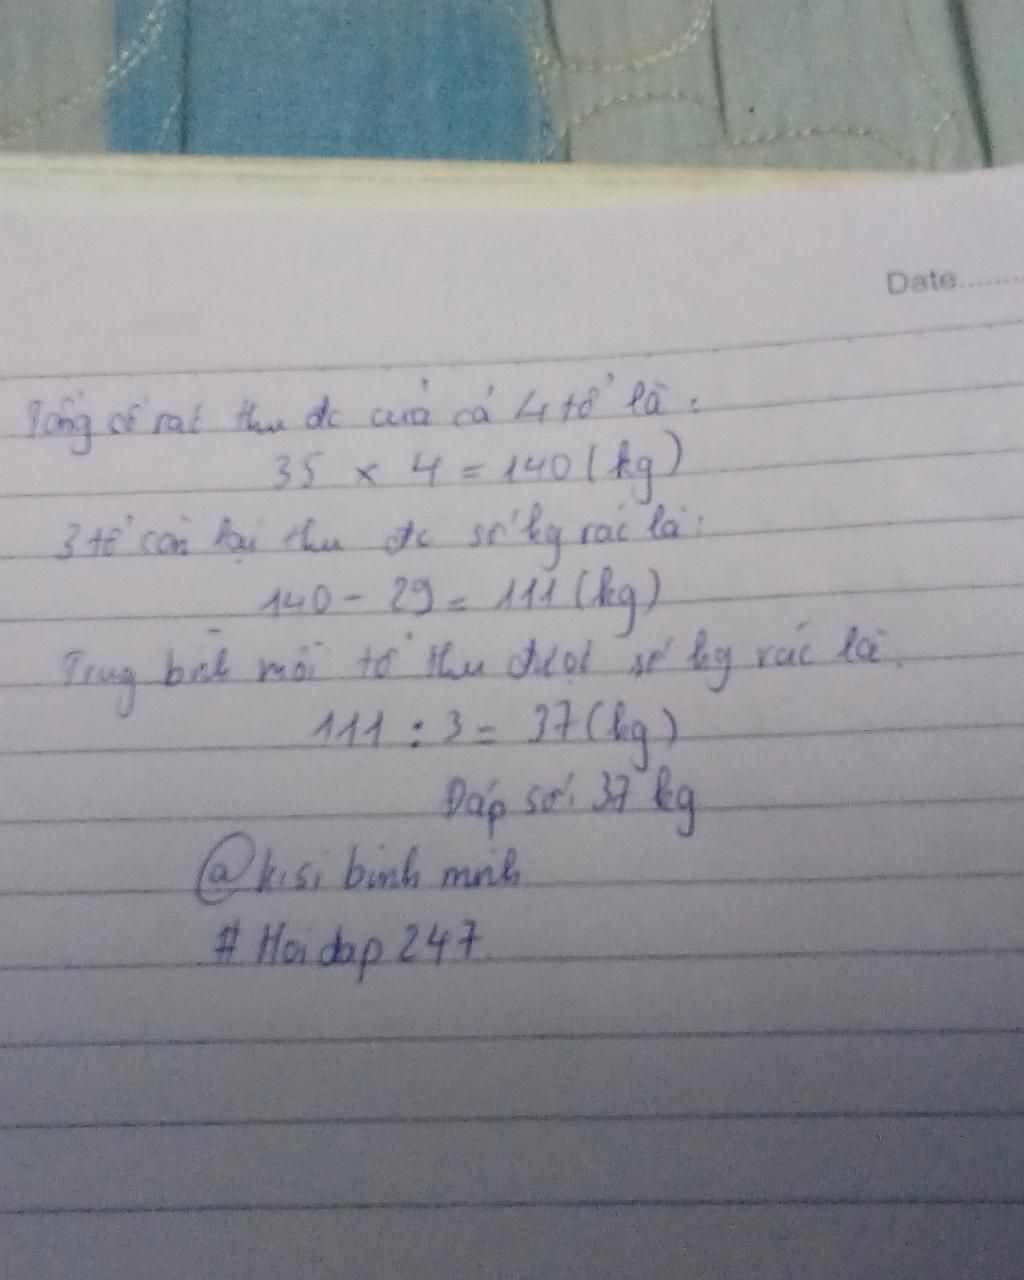 Date.........
Tổng số rác thu đc của cả 4 tổ là:
35 x 4 = 140 (kg)
3 tổ còn lại thu đc số kg rác là:
140 - 29 = 111 (kg)
Trug bình mỗi tổ thu được số kg rác là:
111 : 3 = 37 (kg)
Đáp số: 37 kg
@kisi binh minh
# Hoidap247